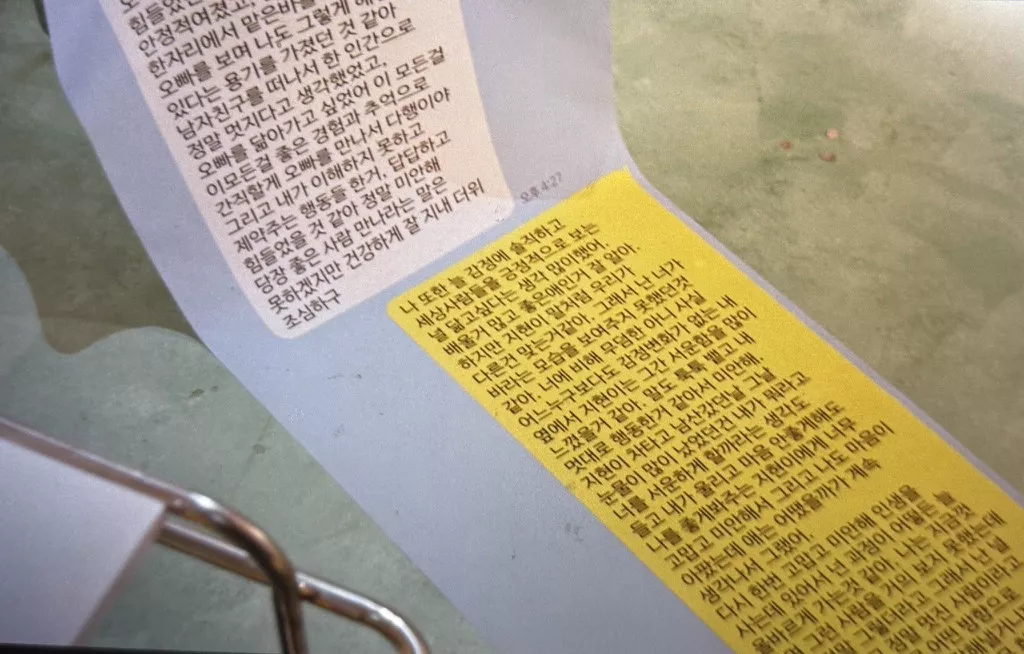 힘들었
안정적여졌고,
한자리에서 맡은바를
오빠를 보며 나도 그렇게
있다는 용기를 가졌던 것 같아
남자친구를 떠나서 한 인간으로
정말 멋지다고 생각했었고.
오빠를 닮아가고 싶었어 이 모든걸
이모든걸 좋은 경험과 추억으로
간직할게 오빠를 만나서 다행이야
그리고 내가 이해하지 못하고
제약주는 행동들 한거. 답답하고
힘들었을 것 같아 정말 미안해
당장 좋은 사람 만나라는 말은
못하겠지만 건강하게 잘 지내 더위
조심하구
오후 4:27
나 또한 늘 감정에 솔직하고
세상사람들을 긍정적으로 보는
널 닮고싶다는 생각 많이했어.
배울거 많고 좋은애인거 잘 알아.
하지만 지현이 말처럼 우리가
다른건 맞는거같아. 그래서 난 너가
바라는 모습을 보여주지 못했던것
같아. 너에 비해 무덤한 아니 사실
어느누구보다도 감정변화가 없는 내
옆에서 지현이는 그간 서운함을 많이
느꼈을거 같아. 말도 툭툭 뱉고 내
멋대로 행동한거 같아서 미안해.
지현이 차타고 남산갔던날 그날
눈물이 많이 났었던건 내가 뭐라고
너를 서운하게 할까라는 생각도
들고 내가 울리고 마음 안좋게해도
나를 좋게봐주는 지현이에게 너무
고맙고 미안해서 그리고 나도 마음이
아팠는데 얘는 어땠을까가 계속
생각나서 그랬어.
다시 한번 고맙고 미안해 인생을
사는데 있어서 넌 과정이 어떻든 늘
올바르게 가는것 같아. 나는 지금껏
그런 사람을 거의 보지 못했는데
그렇더라고 그래서 난 널
정말 멋진 사람이라고
어떤 방향으로